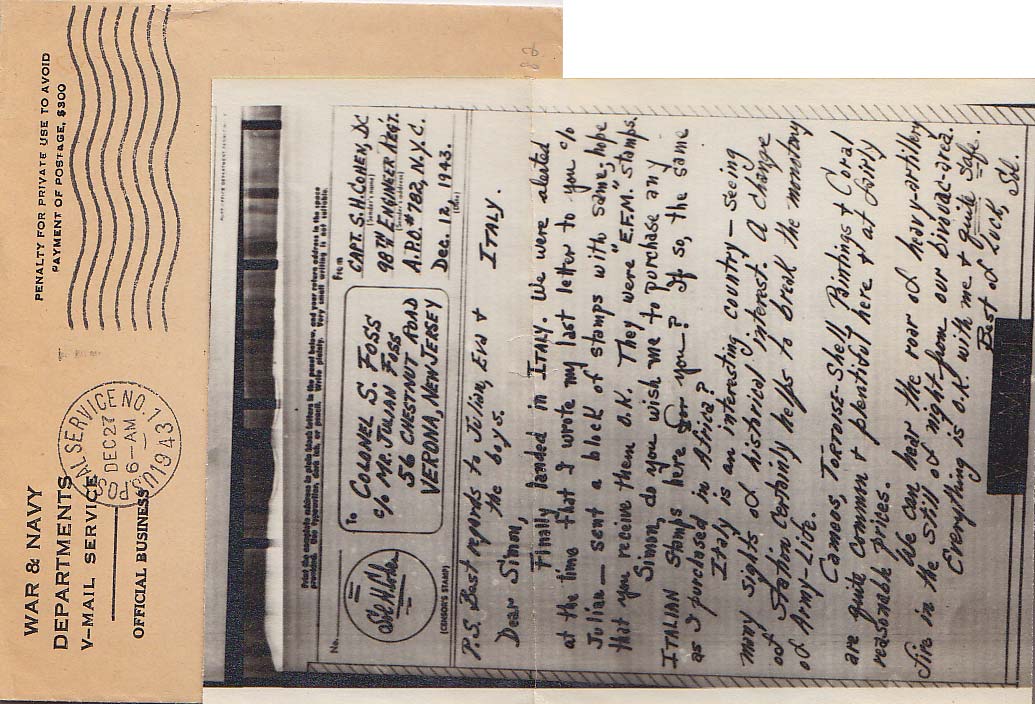 WAR & NAVY
DEPARTMENTS
V-MAIL SERVICE
OFFICIAL BUSINESS
POSTAL SERVICE NO. 1
DEC 27
6-AM
1943
PENALTY FOR PRIVATE USE TO AVOID
PAYMENT OF POSTAGE, $300
Print the complete address in plain block letters in the panel below, and your return address in the space
provided. Use typewriter, dark ink, or pencil. Write plainly. Very small writing is not suitable.
No.
(CENSOR'S STAMP)
To
COLONEL S. FOSS
c/o MR. JULIAN FOSS
56 CHESTNUT ROAD
VERONA, NEW JERSEY
From
CAPT. S.H. COHEN, DC
(Sender's name)
98TH ENGINEER REGT.
(Sender's address)
A.P.O. #782, N.Y.C.
Dec. 12, 1943.
(Date)
P.S. Best regards to Julian, Eva +
the boys.
ITALY.
Dear Simon,
Finally landed in ITALY. We were alerted
at the time that I wrote my last letter to you c/o
Julian — sent a block of stamps with same; hope
that you receive them O.K. They were "E.F.M." stamps.
Simon, do you wish me to purchase any
ITALIAN stamps here for you? If so, the same
as I purchased in Africa?
Italy is an interesting country — seeing
many sights of historical interest. A change
of station certainly helps to break the monotony
of Army-Life.
Cameos, Tortoise-Shell Paintings + Coral
are quite common + plentiful here + at fairly
reasonable prices.
We can hear the roar of heavy-artillery
fire in the still of night from our bivouac-area.
Everything is O.K. with me + quite safe.
Best of Luck,